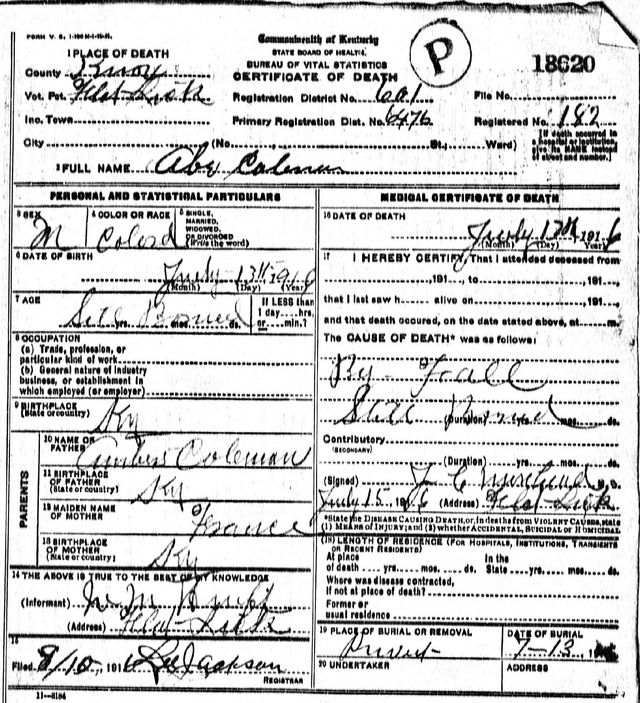 FORM V. S. 1-
Commonwealth of Kentucky
STATE BOARD OF HEALTH
BUREAU OF VITAL STATISTICS
CERTIFICATE OF DEATH
P
18620
1 PLACE OF DEATH
County Knox
Vot. Pct. Flat Lick
Inc. Town
City (No. St., Ward)
Registration District No. 601
Primary Registration Dist. No. 6476
File No.
Registered No. 182
[If death occurred in a hospital or institution, give its NAME instead of street and number.]
2 FULL NAME Abe Coleman
PERSONAL AND STATISTICAL PARTICULARS
3 SEX M
4 COLOR OR RACE Colerd
5 SINGLE, MARRIED, WIDOWED, OR DIVORCED (Write the word)
6 DATE OF BIRTH
July 13th 1916
(Month) (Day) (Year)
7 AGE
Still Borned
yrs. mos. ds.
If LESS than 1 day....hrs. or....min.?
8 OCCUPATION
(a) Trade, profession, or
particular kind of work
(b) General nature of industry
business, or establishment in
which employed (or employer)
9 BIRTHPLACE
(State or country) Ky
PARENTS
10 NAME OF FATHER Coleman
11 BIRTHPLACE OF FATHER (State or country) Ky
12 MAIDEN NAME OF MOTHER France
13 BIRTHPLACE OF MOTHER (State or country) Ky
14 THE ABOVE IS TRUE TO THE BEST OF MY KNOWLEDGE
(Informant)
(Address) Flat Lick
15
Filed 8/10 1916 Lee Jackson
REGISTRAR
11-8184
MEDICAL CERTIFICATE OF DEATH
16 DATE OF DEATH
July 13th 1916
(Month) (Day) (Year)
17 I HEREBY CERTIFY, That I attended deceased from
,191 , to ,191 ,
that I last saw h alive on ,191 ,
and that death occured, on the date stated above, at m.
The CAUSE OF DEATH* was as follows:
By Fall
Still Borned
(Duration) yrs. mos. ds.
Contributory
(SECONDARY)
(Duration) yrs. mos. ds.
(Signed) J C M.D.
July 15 1916 (Address) Flat Lick
*State the DISEASE CAUSING DEATH, or, in deaths from VIOLENT CAUSES, state
(1) MEANS OF INJURY; and (2) whether ACCIDENTAL, SUICIDAL or HOMICIDAL
(18) LENGTH OF RESIDENCE (FOR HOSPITALS, INSTITUTIONS, TRANSIENTS
OR RECENT RESIDENTS)
At place of death yrs. mos. ds.
In the State yrs. mos. ds.
Where was disease contracted,
if not at place of death?
Former or
usual residence
19 PLACE OF BURIAL OR REMOVAL
DATE OF BURIAL
7-13, 191
20 UNDERTAKER
ADDRESS